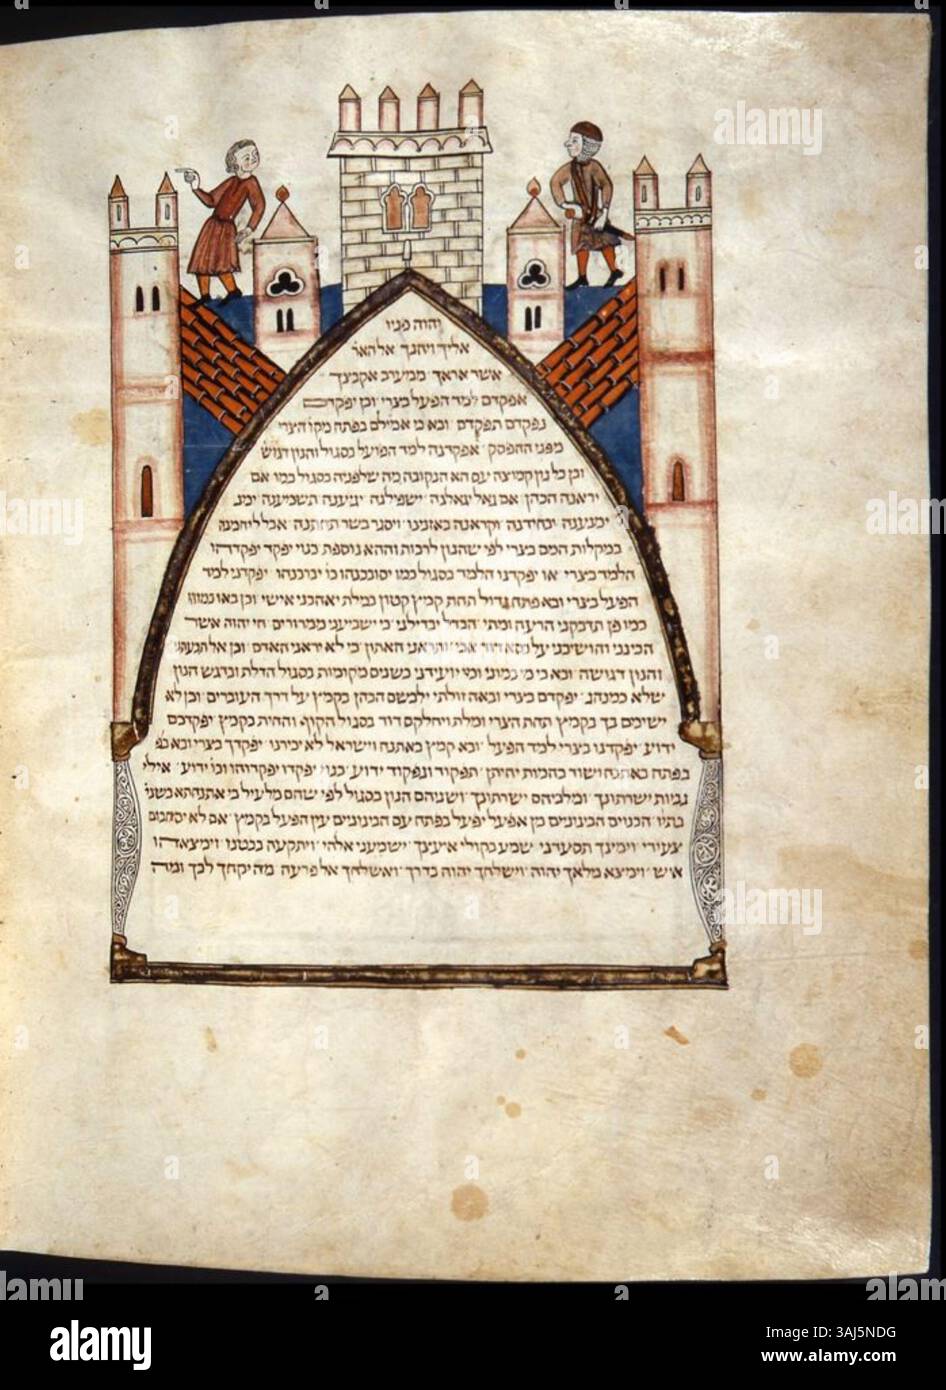 יהוה פניו
אליך ויחנך אל האר
אשר אראך ממערב אקבצך
אפקדם למד הפעל בצרי וכן יפקדם
נפקדם תפקדם ובא מ אמילם בפתח מקו הצרי
מפני ההפסק אפקדנה למד הפועל בסגול והנון דגוש
וכן כל נון קמוצה עם הא הנקובה מה שלפניה בסגול כמו אם
יראנה הכהן אם גאל יגאלנה ישפילנה יגיענה תשמיענה
ימנענה יכחידנה וקראנה באזנינו ויסגר בשר תחתנה אבל
במקלות המם בצרי לפי שהנון לרבות וההא נוספת כנוי יפקד יפקדהו
הלמד בצרי או יפקדנו הלמד בסגול כמו יסובבנהו יפקדני למד
הפועל בצרי ובא פתח גדול תחת קמץ קטון במלת יאהבני אישי וכן באו
כמו פן תדבקני הרעה ומתי הבדל יבדילני כי ישביעני ממרורים חי יהוה אשר
הכינני והושיבני על כסא דוד אבי ותראני האתון כי לא יראני האדם וכן אל
והנון דגושה ובא כי מי יועידני בשנים מקומות בסגול הדלת ובדגש הנון
שלא כמנהג יפקדם בצרי ובאה זולתי ילבשם הכהן בקמץ על דרך העוברים וכן לא
ישימים בך בקמץ תחת הצרי ומלת ויחלקם דוד בסגול הקוף והחית בקמץ יפקדכם
ידוע יפקדנו בצרי למד הפעל ובא קמץ באתנח וישראל לא יכירנו יפקדך בצרי ובא
בפתח באתנח ושור בהמות יהיתן תפקוד ונפקוד ידוע כנוי יפקדו יפקדוהו וכו ידוע אילי
נביות ישרתונך ומלכיהם ישרתונך ושניהם הנון בסגול לפי שהם מלעיל כי אתנחתא בשני
בתיו הכנוים הבינונים מן אפעיל יפעל בפתח עם הבינונים עין הפעל בקמץ אם לא
צעירי וימינך תסעדני שמע בקולי איעצך ישמעני אלהי ויתקעה בבטנו וימצאהו
איש וימצא מלאך יהוה וישלחך יהוה בדרך ואשלחך אל פרעה מה יקחך לבך ומה
alamy
Image ID: 3AJ5NDG
www.alamy.com